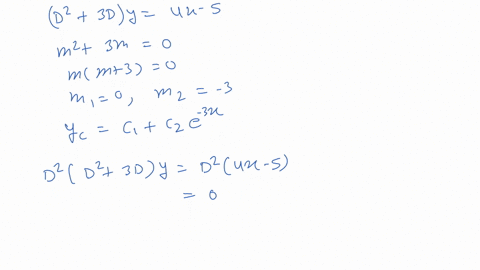 (D² + 3D) y = 4x - 5
m² + 3m = 0
m(m+3) = 0
m₁ = 0, m₂ = -3
y_c = C₁ + C₂ e^{-3x}
D² (D² + 3D) y = D² (4x - 5)
= 0